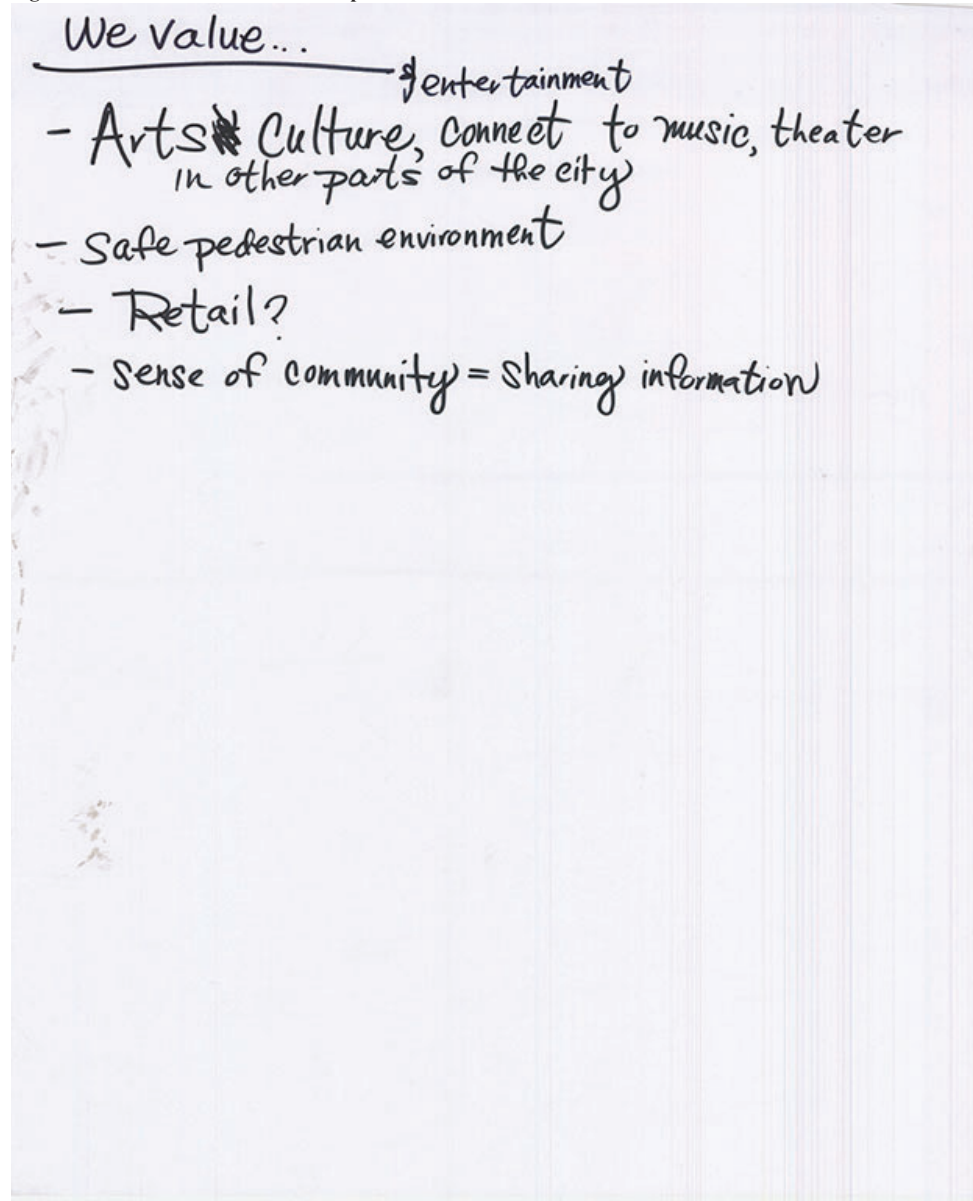 We value...
& entertainment
- Arts Culture, connect to music, theater
in other parts of the city
- Safe pedestrian environment
- Retail?
- Sense of community = Sharing information